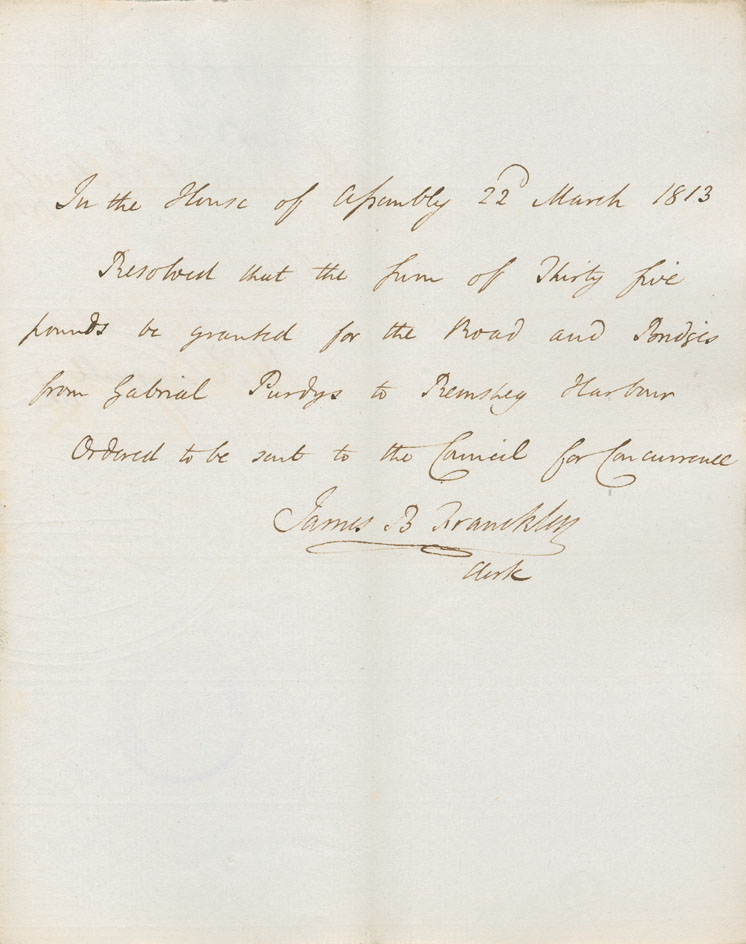 In the House of Assembly 22d March 1813
Resolved that the sum of Thirty five
pounds be granted for the Road and Bridges
from Gabrial Purdys to Remsheg Harbour
Ordered to be sent to the Council for Concurrence
James B Franckling
Clerk